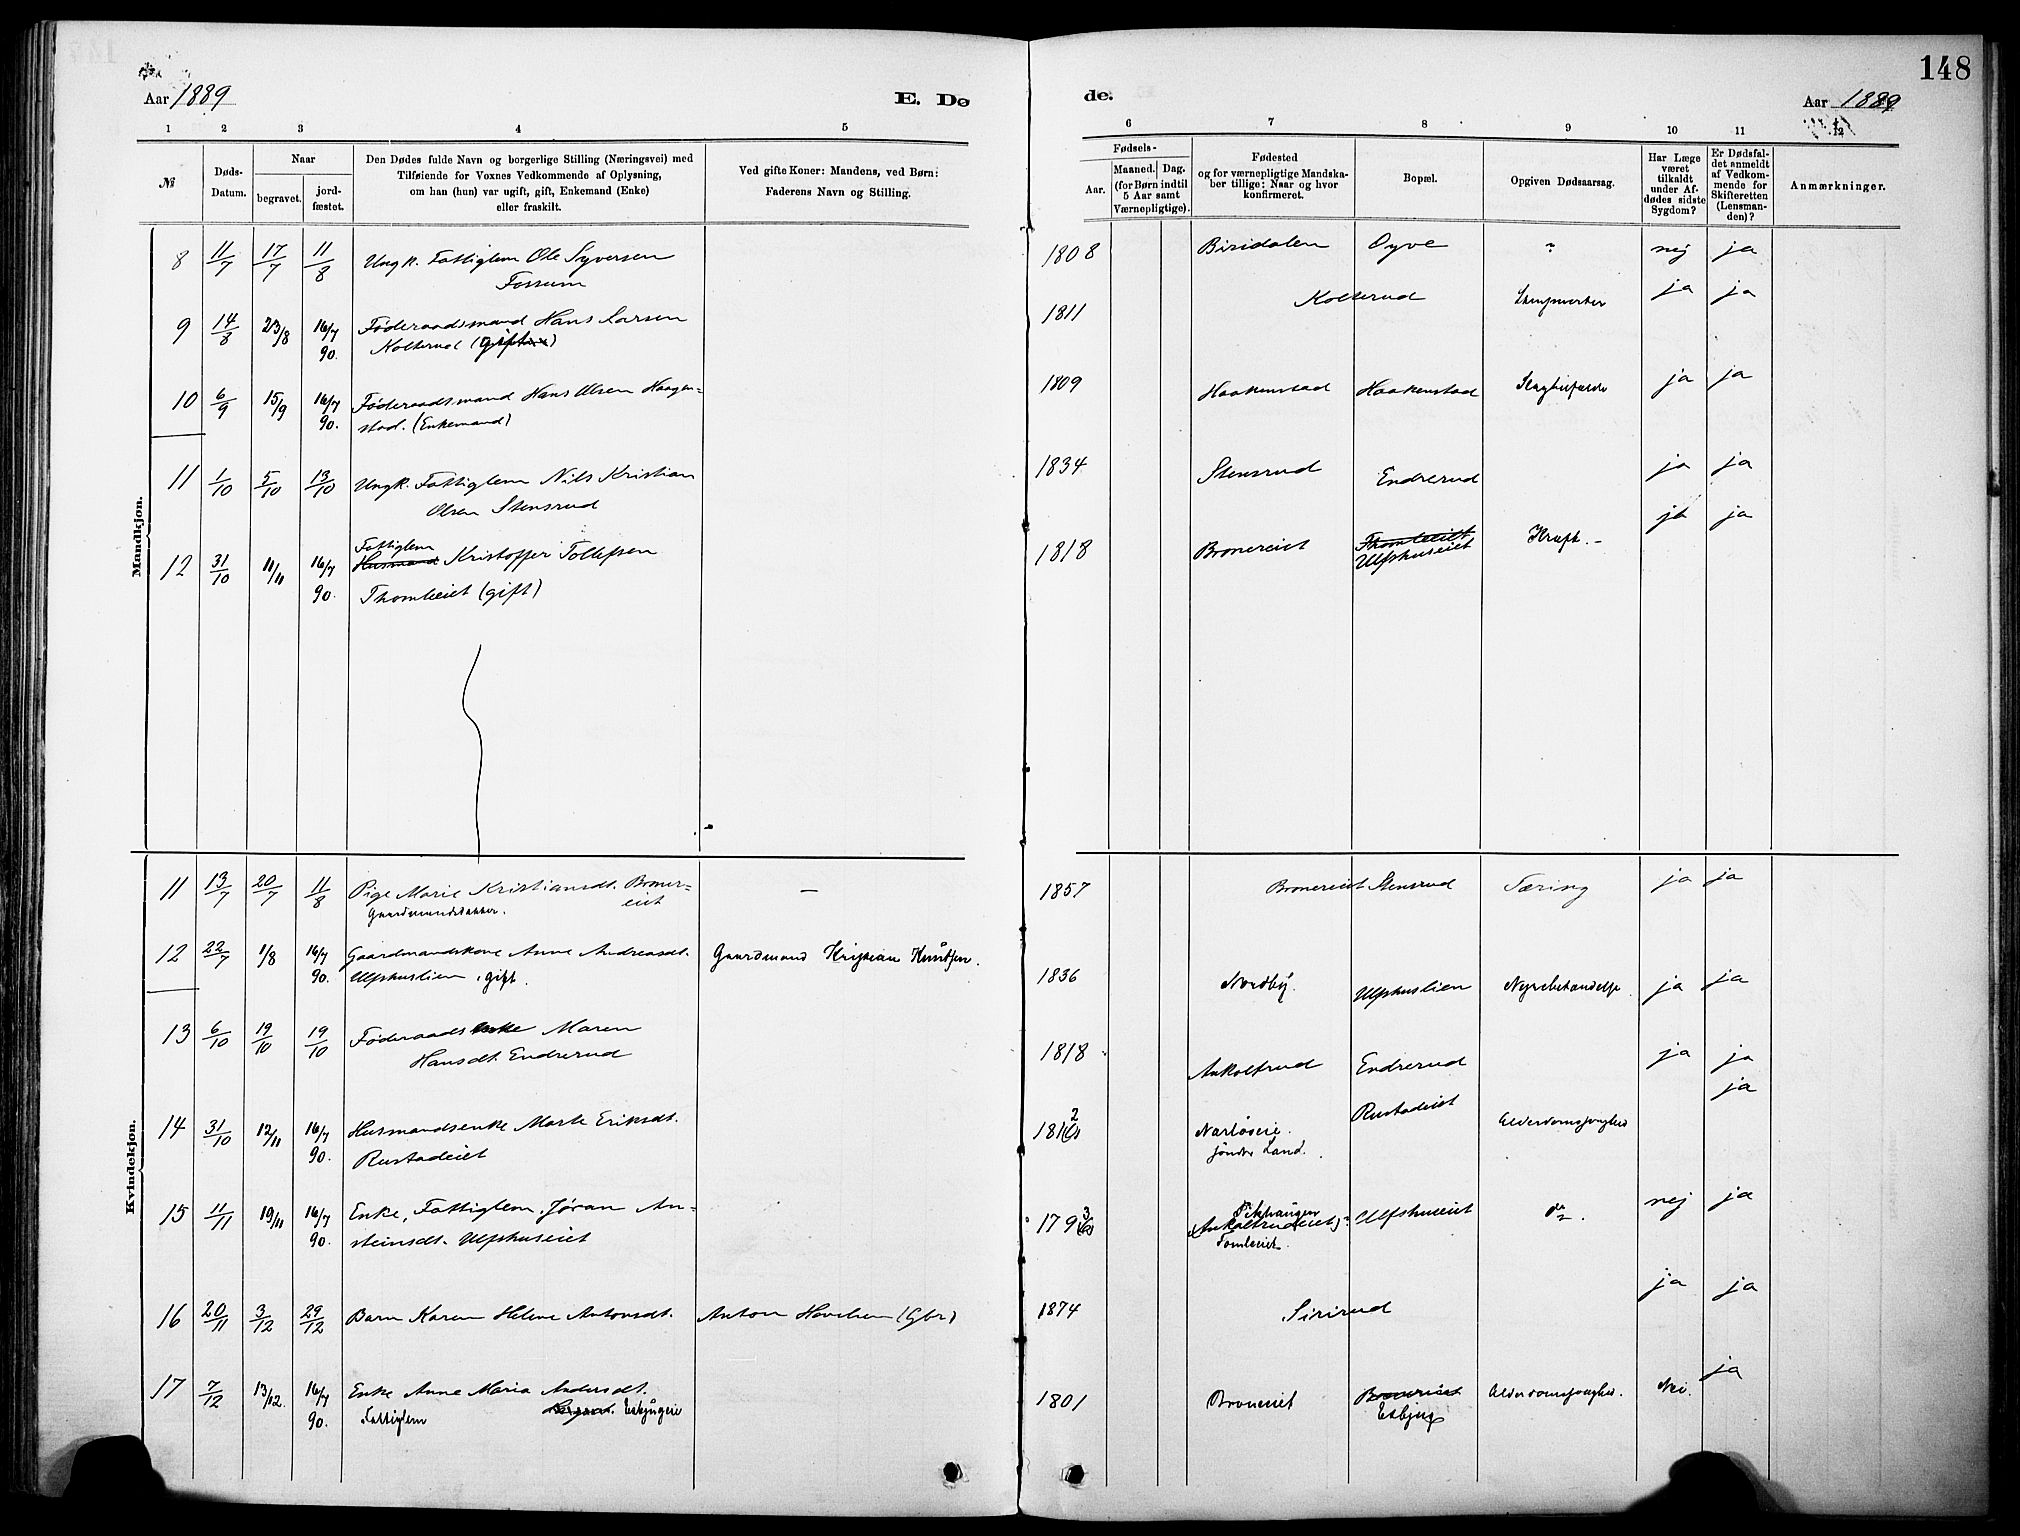 148
Aar 1889
E. Dø
de.
Aar 1889
1 2 3 4 5
6 7 8 9 10 11 12
№
Døds-
Datum.
Naar
begravet.
jord-
fæstet.
Den Dødes fulde Navn og borgerlige Stilling (Næringsvei) med
Tilføiende for Voxnes Vedkommende af Oplysning,
om han (hun) var ugift, gift, Enkemand (Enke)
eller fraskilt.
Ved gifte Koner: Mandens, ved Børn:
Faderens Navn og Stilling.
Fødsels-
Aar.
Maaned. Dag.
(for Børn indtil
5 Aar samt
Værnepligtige).
Fødested
og for værnepligtige Mandska-
ber tillige: Naar og hvor
konfirmeret.
Bopæl.
Opgiven Dødsaarsag.
Har Læge
været
tilkaldt
under Af-
dødes sidste
Sygdom?
Er Dødsfal-
det anmeldt
af Vedkom-
mende for
Skifteretten
(Lensman-
den)?
Anmærkninger.
Mandkjøn.
8 11/7 17/7 11/8 Ungk. Fattiglem Ole Syversen
Fossum
1808 Biridalen Oyve " nej ja
9 14/8 23/8 16/7 90. Føderaadsmand Hans Larsen
Kolterud (gift)
1811 Kolterud ja ja
10 6/9 15/9 16/7 90. Føderaadsmand Hans Olsen Haagen=
stad. (Enkemand)
1809 Haakenstad Haakenstad Slagtilfælde ja ja
11 1/10 5/10 13/10 Ungk. Fattiglem Nils Kristian
Olsen Stensrud
1834 Stensrud Endrerud ja ja
12 31/10 11/11 16/7 90. Fattiglem
Husmand Kristoffer Tollefsen
Thomleiet (gift)
1818 Bronereiet Thomleeiet
Ulfshuseiet Kræft. ja ja
Kvindekjøn.
11 13/7 20/7 11/8 Pige Marie Kristiansdt. Broner=
eiet
Gaardmandsdatter.
—
1857 Bronereiet Stensrud Tæring ja ja
12 22/7 1/8 16/7 90. Gaardmandskone Anne Andreasdt.
Ulfshuslien, gift.
Gaardmand Kristian Knudsen.
1836 Nordby. Ulfshuslien ja ja
13 6/10 19/10 19/10 Føderaadsenke Maren
Hansdt. Endrerud
1818 Ankoltrud Endrerud ja ja
14 31/10 12/11 16/7 90. Husmandsenke Marte Eriksdt.
Rustadeiet
1812 Søndre Land. Rustadeiet Alderdomssvaghed ja
15 11/11 19/11 16/7 90. Enke, Fattiglem, Jøran An-
steinsdt. Ulfshuseiet
1793 (Ankoltrudeiet)
Tomleeiet. Ulfshuseiet do. nej ja
16 20/11 3/12 29/12 Barn Karen Helene Antonsdt.
Anton Hovelsen (Gbr)
1874 Sirirud ja ja
17 7/12 13/12. 16/7 90. Enke Anne Maria Andersdt.
Fattiglem Esbjugeie
1801 Broneeiet Bronereiet
Esbjug Alderdomssvaghed. Nei. ja